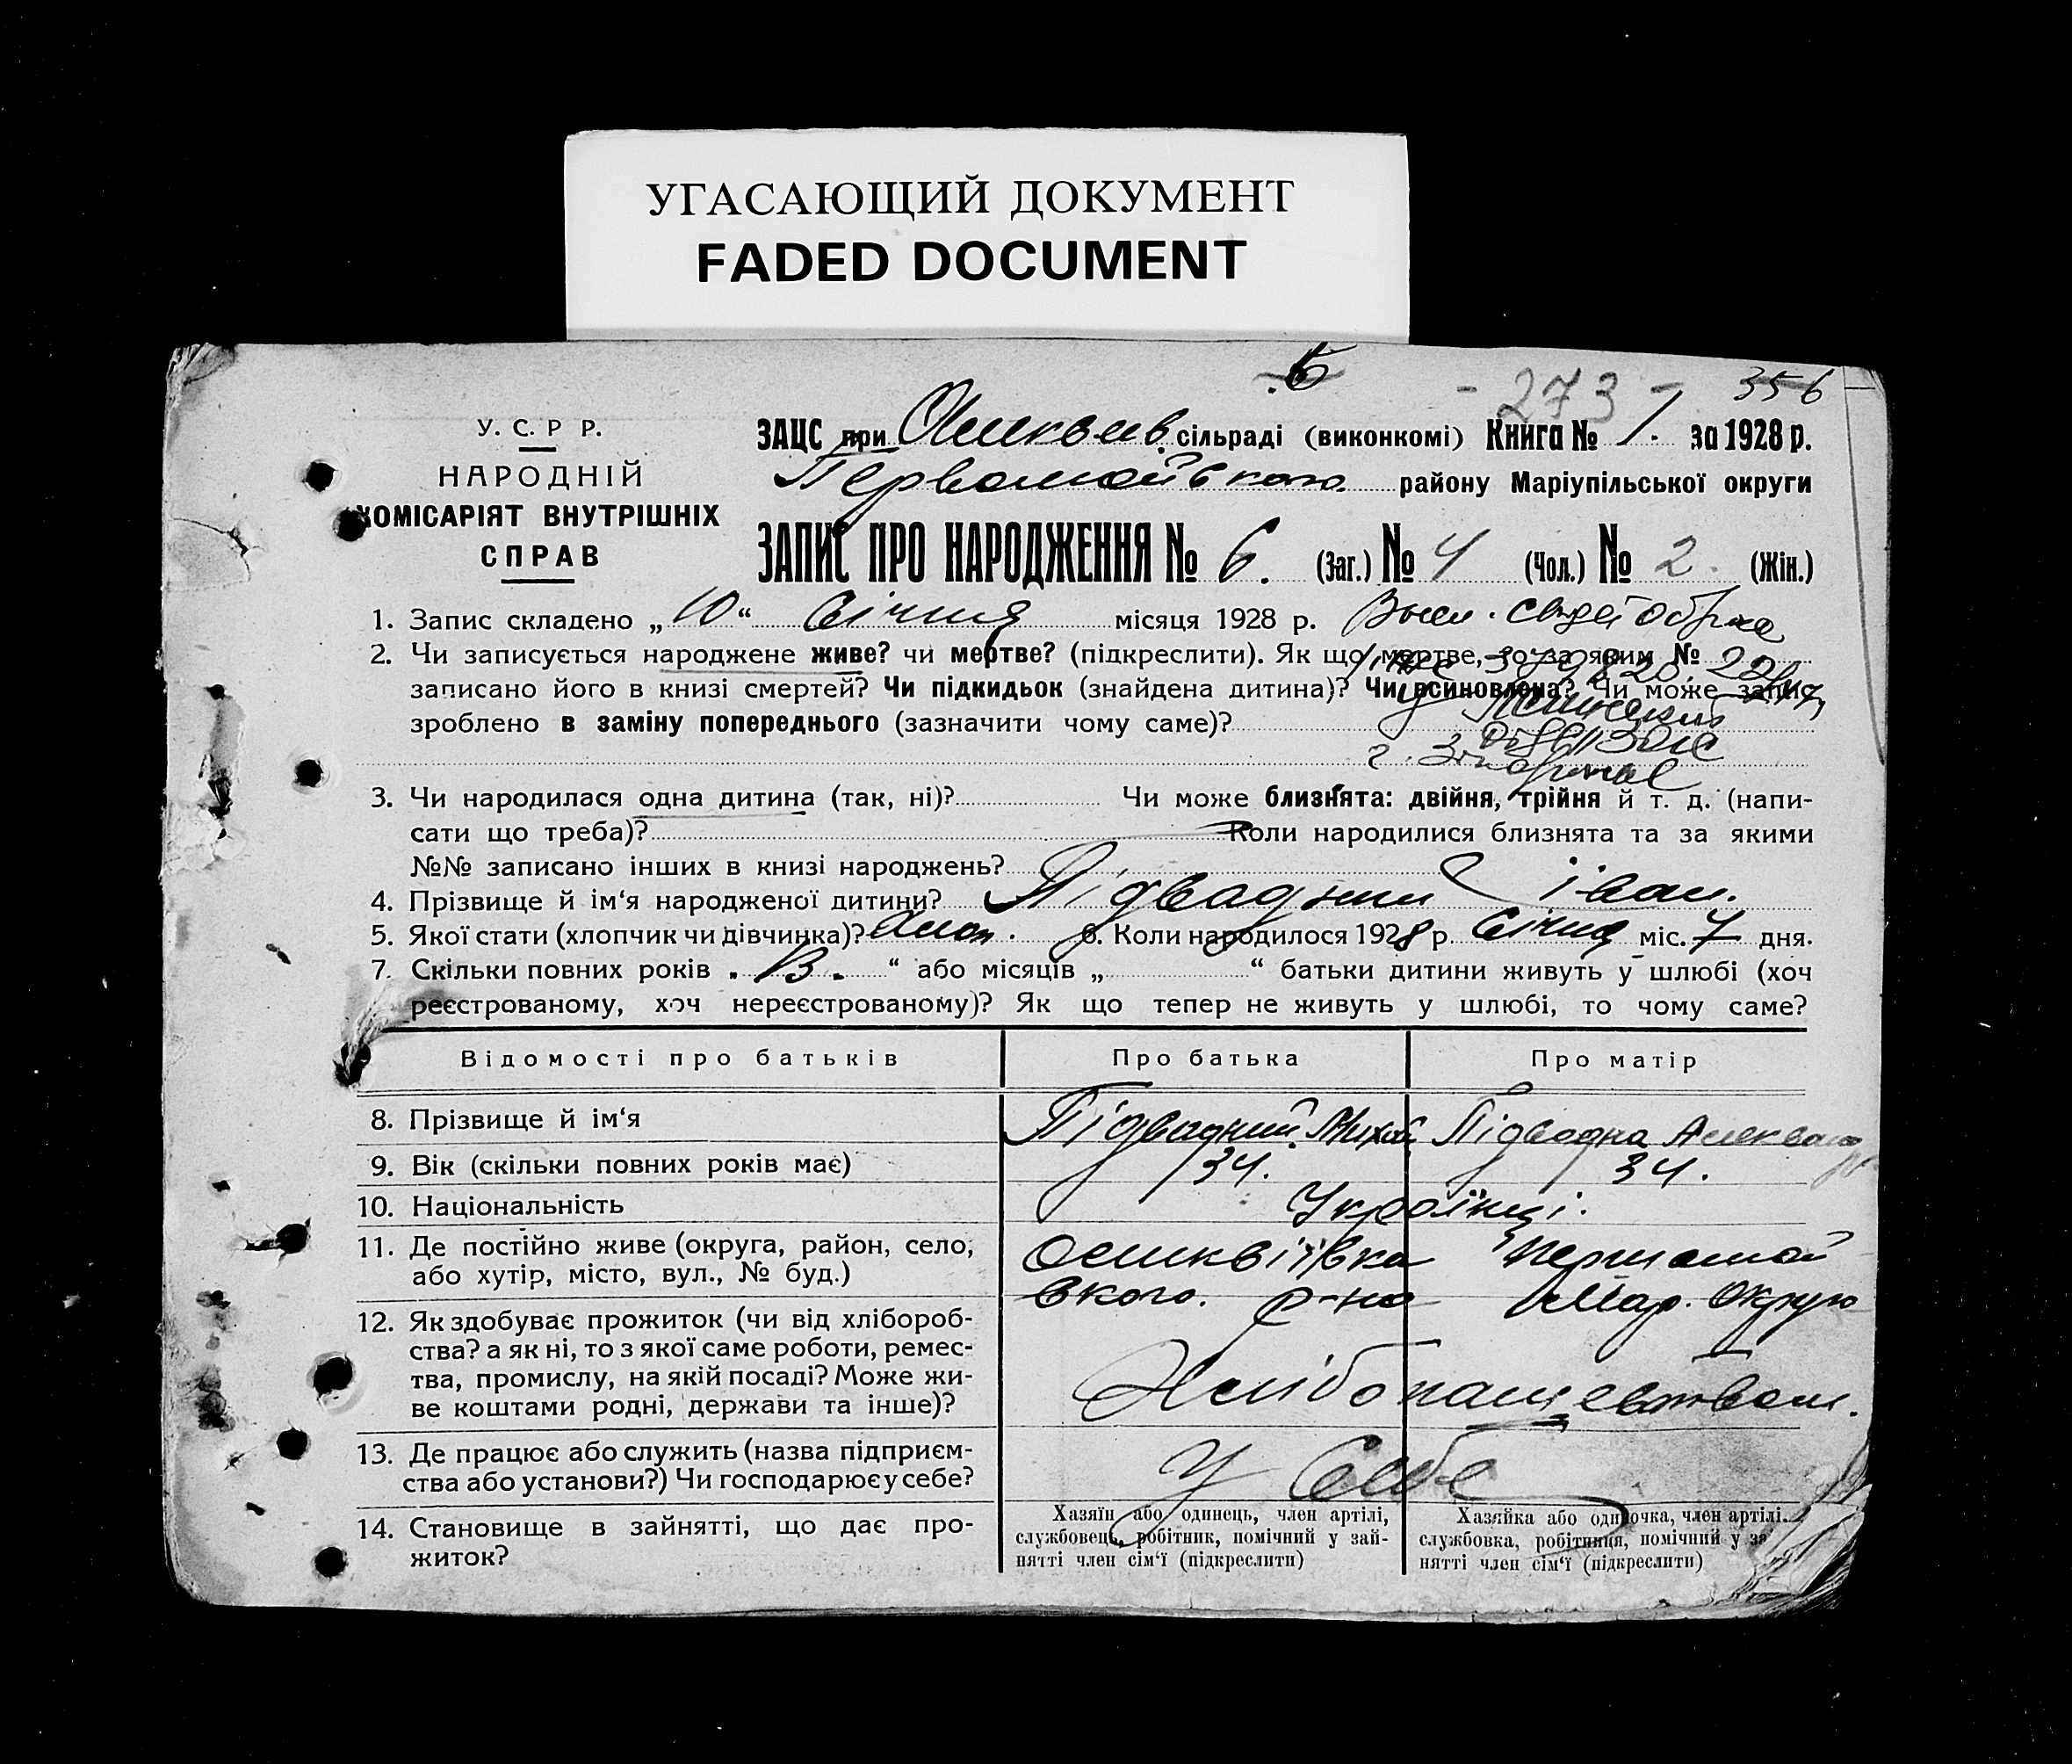 УГАСАЮЩИЙ ДОКУМЕНТ
FADED DOCUMENT
- 273 - 356
У. С. Р Р.
НАРОДНІЙ
КОМІСАРІЯТ ВНУТРІШНІХ
СПРАВ
ЗАЦС при сільраді (виконкомі) Книга № 1. за 1928 р.
Первомайського району Маріупільської округи
ЗАПИС ПРО НАРОДЖЕННЯ № 6. (Заг.) № 4 (Чол.) № 2. (Жін.)
1. Запис складено „10“ Січня місяця 1928 р.
2. Чи записується народжене живе? чи мертве? (підкреслити). Як що мертве, то за яким №
записано його в книзі смертей? Чи підкидьок (знайдена дитина)? Чи всиновлена? Чи може запис
зроблено в заміну попереднього (зазначити чому саме)?
3. Чи народилася одна дитина (так, ні)? Чи може близнята: двійня, трійня й т. д. (напи-
сати що треба)? Коли народилися близнята та за якими
№№ записано інших в книзі народжень?
4. Прізвище й ім‘я народженої дитини? Підвадний Іван.
5. Якої стати (хлопчик чи дівчинка)? Хлоп. 6. Коли народилося 1928 р. Січня міс. 7 дня.
7. Скільки повних років „13.“ або місяців „ “ батьки дитини живуть у шлюбі (хоч
реєстрованому, хоч нереєстрованому)? Як що тепер не живуть у шлюбі, то чому саме?
Відомості про батьків Про батька Про матір
8. Прізвище й ім‘я Підвадний Миха Підводна Александ
9. Вік (скільки повних років має) 34. 34.
10. Національність Українці.
11. Де постійно живе (округа, район, село,
або хутір, місто, вул., № буд.)
вского. р-на Мар. Округ
12. Як здобуває прожиток (чи від хлібороб-
ства? а як ні, то з якої саме роботи, ремес-
тва, промислу, на якій посаді? Може жи-
ве коштами родні, держави та інше)?
Хлібопашевством.
13. Де працює або служить (назва підприєм-
ства або установи?) Чи господарює у себе?
У Себе
14. Становище в зайнятті, що дає про-
житок?
Хазяїн або одинець, член артілі,
службовець, робітник, помічний у зай-
нятті член сім‘ї (підкреслити)
Хазяйка або одиночка, член артілі.
службовка, робітниця, помічний у за
нятті член сім‘ї (підкреслити)